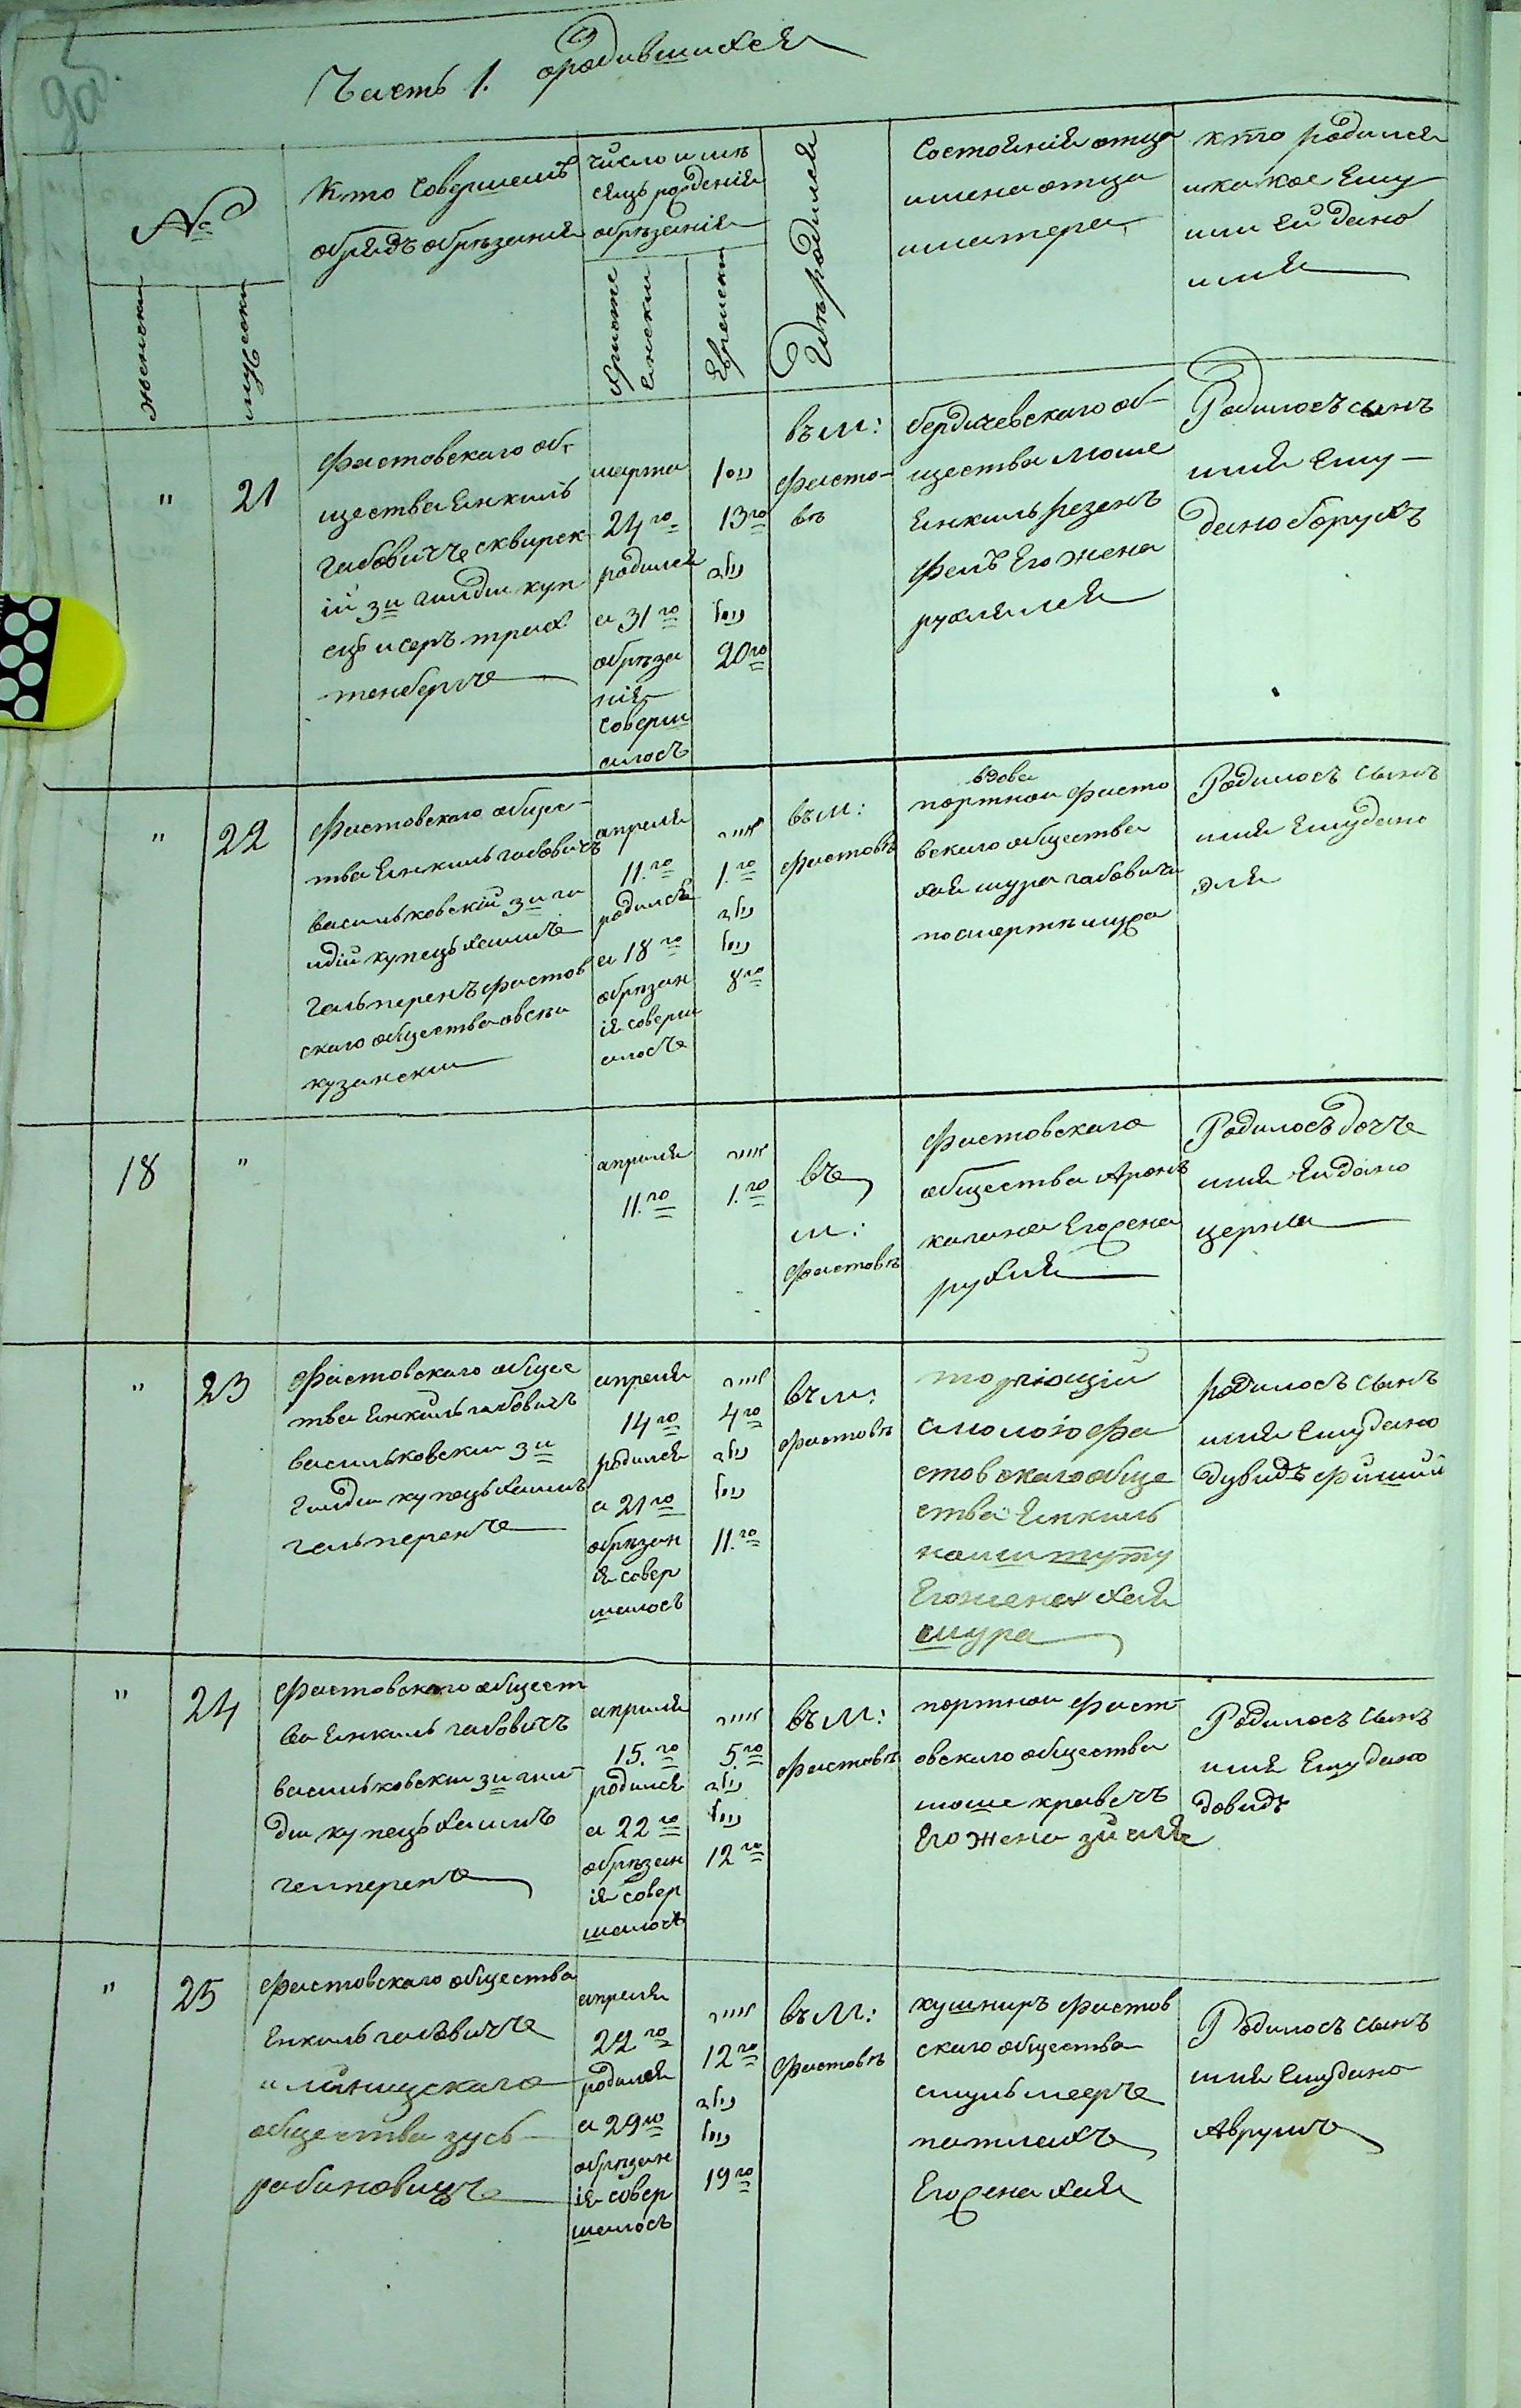 Часть 1. о родившихся
№
женски
мужески
Кто совершалъ
обрядъ обрѣзанія
число и мѣ
сяцъ рожденія
обрѣзанія
христіа
нски
Еврейски
Гдѣ родился
Состоянія отца
имена отца
и матери
кто родился
и какое Ему
или Ей дано
имя
" 21
фастовскаго об-
щества Енкиль
габовичъ сквирск
ій 3й гилди куп
ецъ исеръ трах
тенбергъ
марта
24го
родился
а 31го
обрѣза
нія
соверш
алось
13го
20го
въ м:
Фасто-
вѣ
бердичевскаго об-
щества Моше
Енкиль резен
Его жена
рухля лея
Родилось сынъ
имя Ему
дано борухъ
" 22
Фастовскаго общес-
тва Енкиль габовичъ
васильковскій 3й ги
лдій купецъ хаимъ
гальперенъ фастов
скаго общества овси
кузански
апреля
11.го
родился
а 18го
обрѣзан
ія соверш
алось
1.го
8го
въ м:
фастовѣ
вдова
портнои фасто
вскаго общества
хая сура габовичъ
Родилось сынъ
имя Ему дано
эля
18 "
апреля
11.го
1.го
въ
м:
фастовѣ
Фастовскаго
общества Аронъ
Его жена
рухля
Родилось дочь
имя Ей дано
черна
" 23
Фастовскаго общес
тва Енкиль габовичъ
васильковски 3й
гилди купецъ хаимъ
гальперенъ
апреля
14го
родился
а 21го
обрѣзан
ія совер
шалось
4го
11.го
въ м:
фастовѣ
торгющій
смолою фа
стовскаго обще
ства Енкиль
Его жена хая
сура
родилось сынъ
имя Ему дано
дувидъ фишии
" 24
Фастовскаго общест
ва Енкиль габовичъ
васильковски 3й гил
ди купецъ хаимъ
гелперенъ
апреля
15.го
родился
а 22го
обрѣзан
ія совер
шалось
5.го
12го
въ м:
фастовѣ
портнои Фаст-
овскаго общества
моше кравецъ
Его жена зисля
Родилось сынъ
имя Ему дано
довидъ
" 25
Фастовскаго общества
Енкиль габовичъ
общества зусь
рабиновичъ
апреля
22го
родился
а 29го
обрѣзан
ія совер
шалось
12го
19го
въ м:
фастовѣ
кушниръ фастов
скаго общества
сруль мееръ
Его жена хая
Родилось сынъ
имя Ему дано
Аврумъ